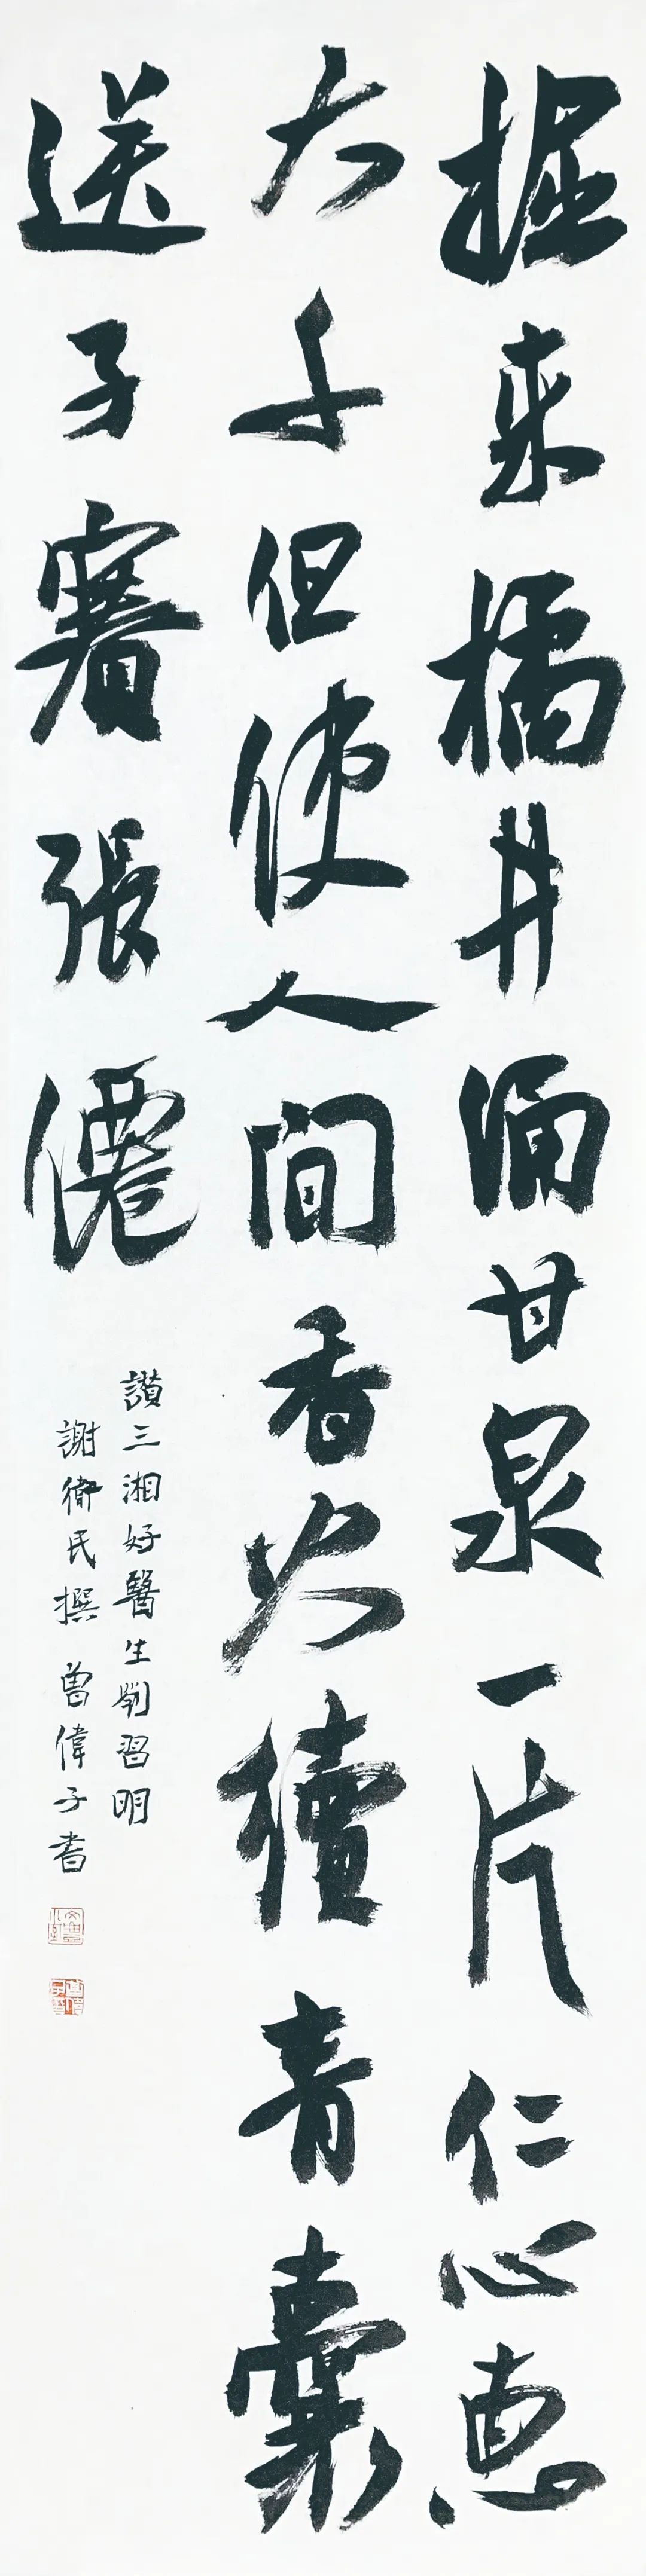 掘来橘井涌甘泉一片仁心惠
大千但使人间香火續青囊
送子賽張僊
讃三湘好醫生劉習明
謝衛民撰 曾偉子書